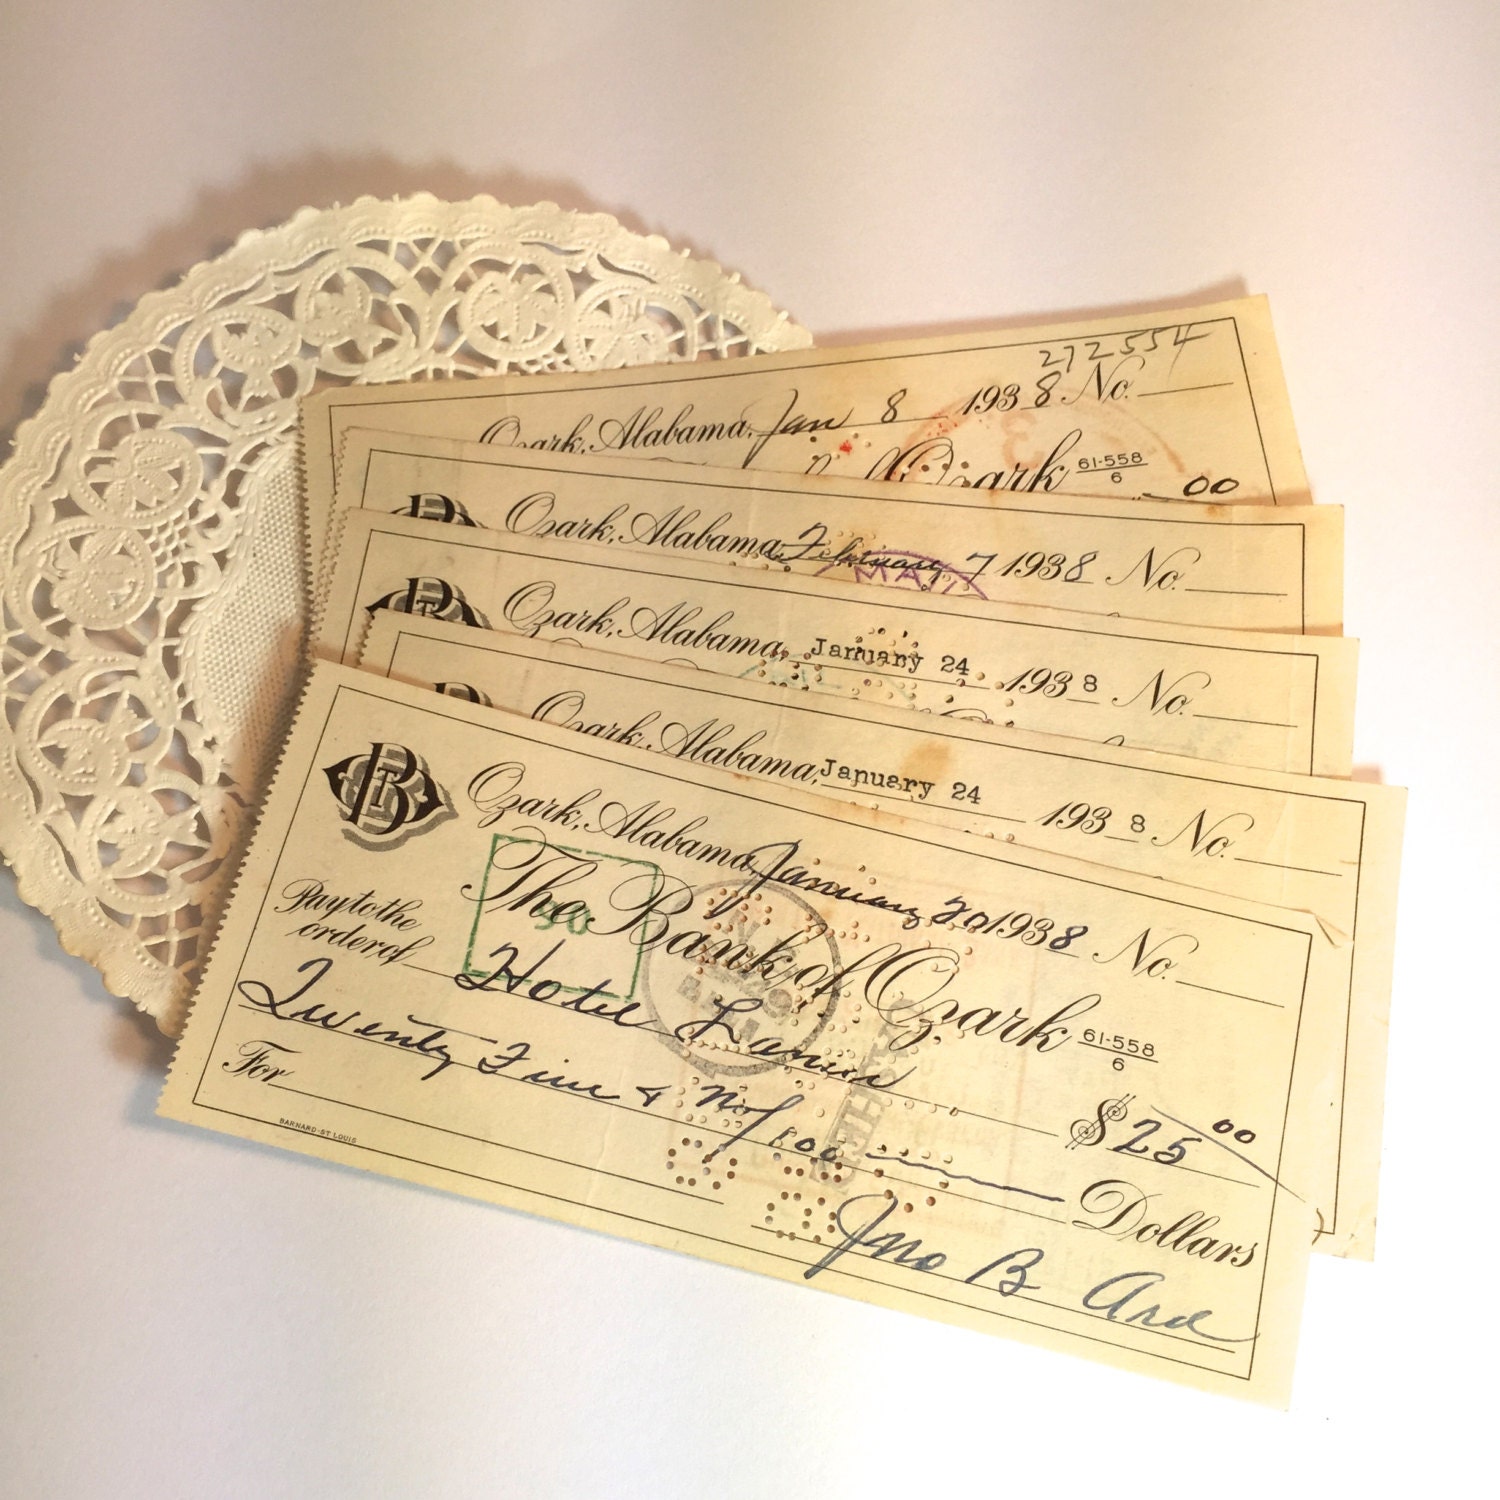 272554
Ozark, Alabama, Jan 8 1938 No.
Ozark 61-558/6
00
Ozark, Alabama, February 7 1938 No.
MAIL
Ozark, Alabama, January 24 1938 No.
Ozark, Alabama, January 24 1938 No.
BT
Ozark, Alabama, January 20 1938 No.
The Bank of Ozark 61-558/6
Pay to the
order of Hotel Lanier $25 00
Twenty Five & No/100 Dollars
For
BARNARD-ST LOUIS
Jno B Ard